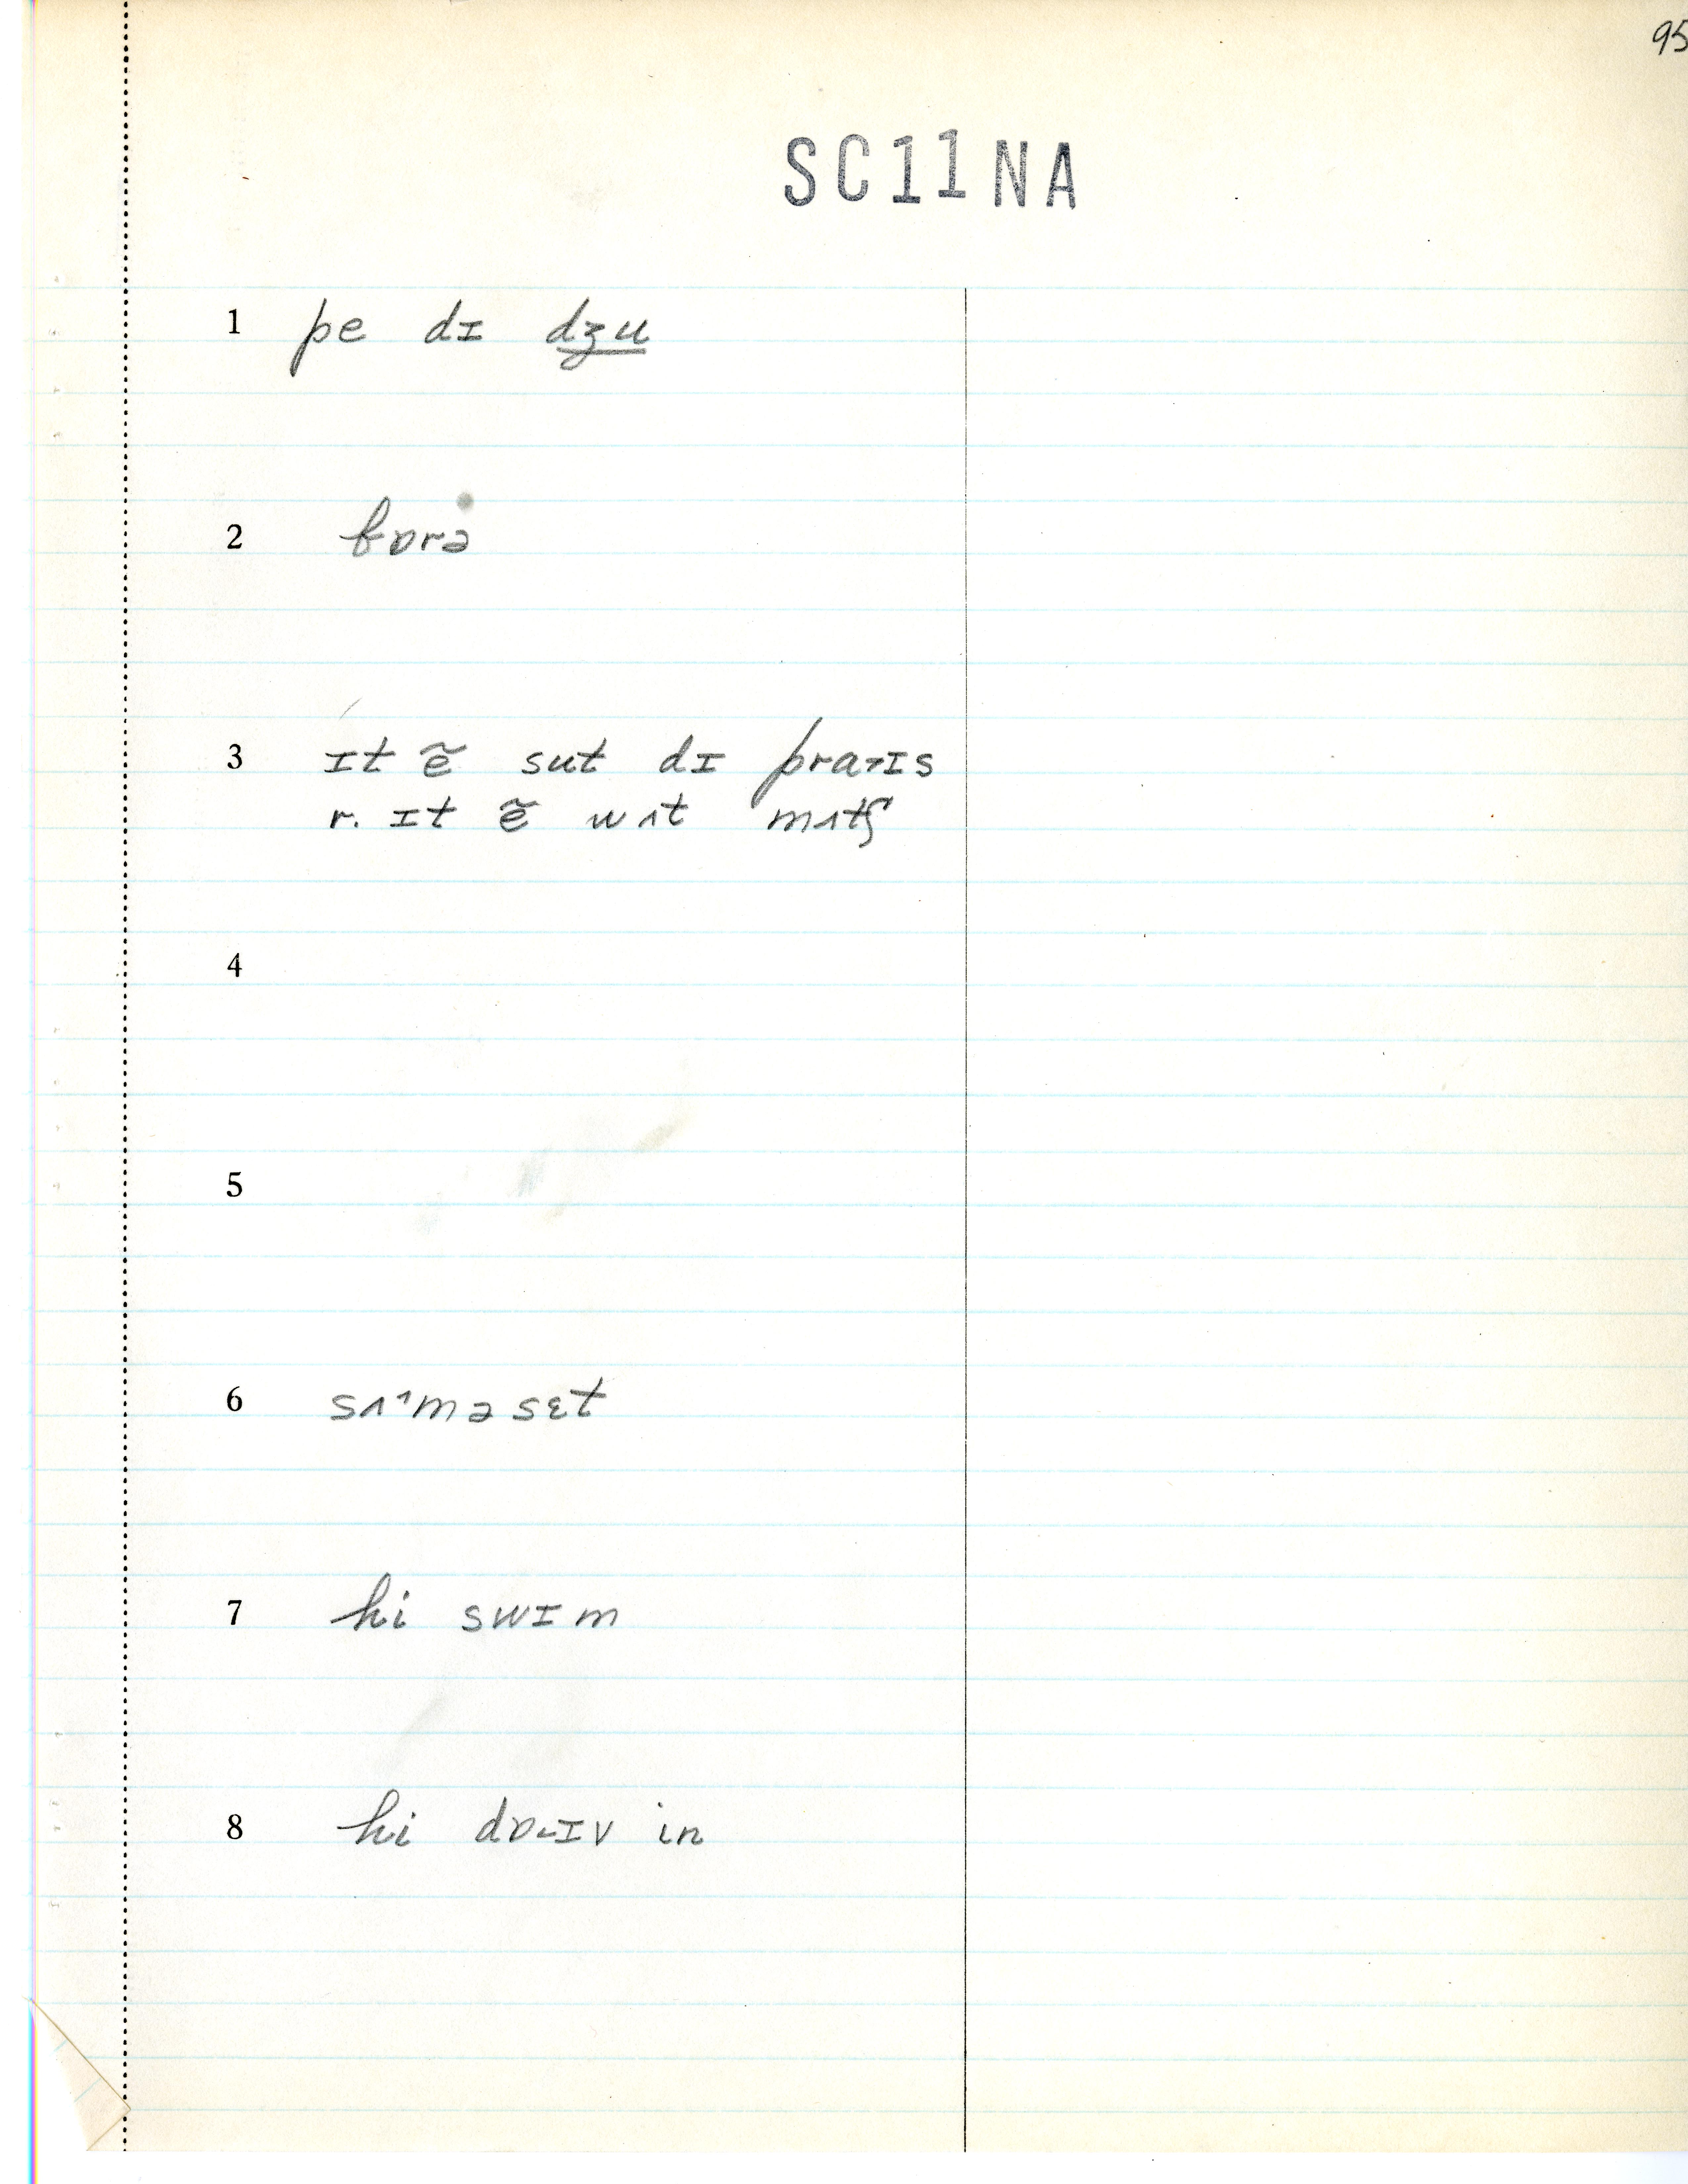 95
SC11NA
1 pe dɪ dʒu
2 bɒrə
3 ɪt ẽ sut dɪ pra˃ɪs
r. ɪt ẽ wʌt mʌtʃ
4
5
6 sʌ˄mə sɛt
7 hi swɪm
8 hi dɒ˂ɪv in